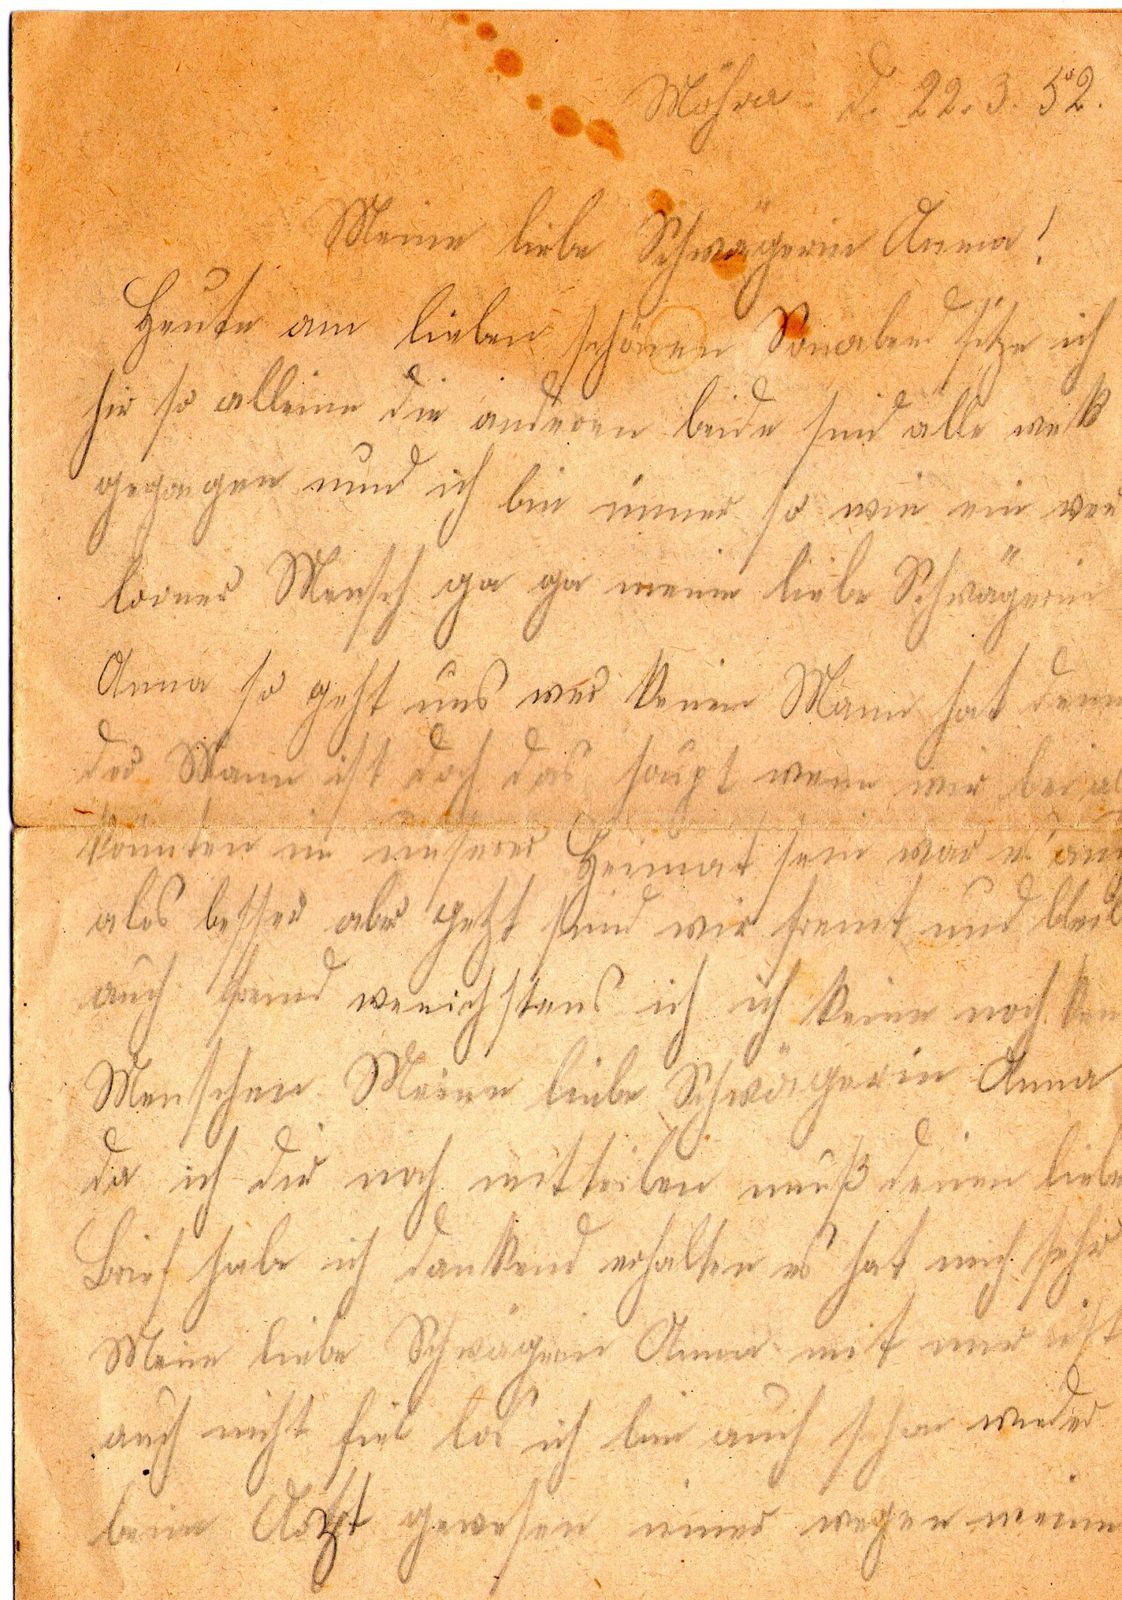 Möhra d. 22.3.52.
Meine liebe Schwägerin Anna!
Heute am lieben schönen Sonabend sitze ich
hir so alleine die anderen beide sind alle wek
gegangen und ich bin imer so wie ein ver
lorner Mensch ga ga meine liebe Schwägerin
Anna so geht uns wer keinen Mann hat denn
der Mann ist doch das haupt wenn wir bei al
könnten in unserer Heimat sein war
ales besser aber getzt sind wir fremt und bleib
auch fremd wenichstens ich ich keine noch ken
Menschen Meine liebe Schwägerin Anna
da ich dir noch mitteilen muß deinen liebe
Brief habe ich dankend erhalten es hat mich sehr
Meine liebe Schwägerin Anna mit mir ist
auch nicht fiel los ich bin auch schon wieder
beim Arzt gewesen imer wegen meine